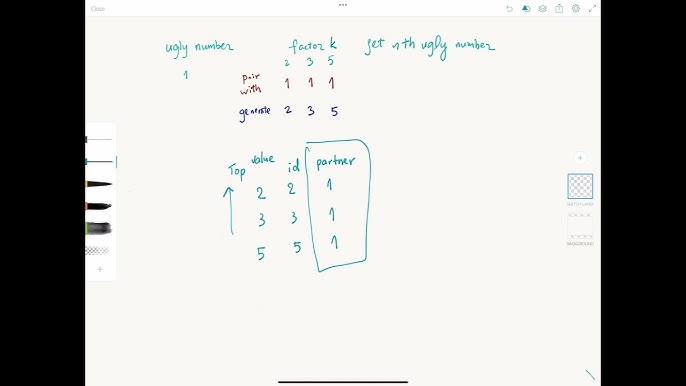 Close
ugly number factor k get nth ugly number
2 3 5
1
pair with 1 1 1
generate 2 3 5
Top value id partner
2 2 1
3 3 1
5 5 1
SKETCH LAYER
BACKGROUND